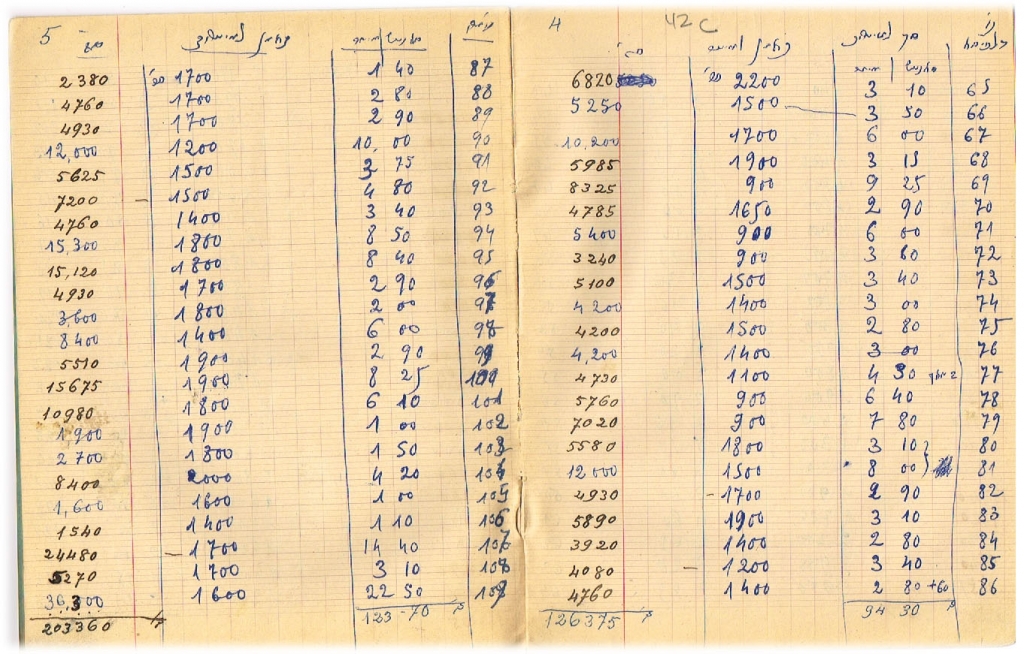 4 42 C
6820 2200 3 10 65
5250 1500 3 50 66
10,200 1700 6 00 67
5985 1900 3 15 68
8325 900 9 25 69
4785 1650 2 90 70
5400 900 6 00 71
3240 900 3 60 72
5100 1500 3 40 73
4200 1400 3 00 74
4200 1500 2 80 75
4,200 1400 3 00 76
4730 1100 4 30 77
5760 900 6 40 78
7020 900 7 80 79
5580 1800 3 10 80
12000 1500 8 00 81
4930 1700 2 90 82
5890 1900 3 10 83
3920 1400 2 80 84
4080 1200 3 40 85
4760 1400 2 80 +60 86
126375 94 30
5
2380 1700 1 40 87
4760 1700 2 80 88
4930 1700 2 90 89
12,000 1200 10,00 90
5625 1500 3 75 91
7200 1500 4 80 92
4760 1400 3 40 93
15,300 1800 8 50 94
15,120 1800 8 40 95
4930 1700 2 90 96
3,600 1800 2 00 97
8400 1400 6 00 98
5510 1900 2 90 99
15675 1900 8 25 100
10980 1800 6 10 101
1,900 1900 1 00 102
2700 1800 1 50 103
8400 2000 4 20 104
1,600 1600 1 00 105
1540 1400 1 10 106
24480 1700 14 40 107
5270 1700 3 10 108
36,000 1600 22 50 109
203360 123-70